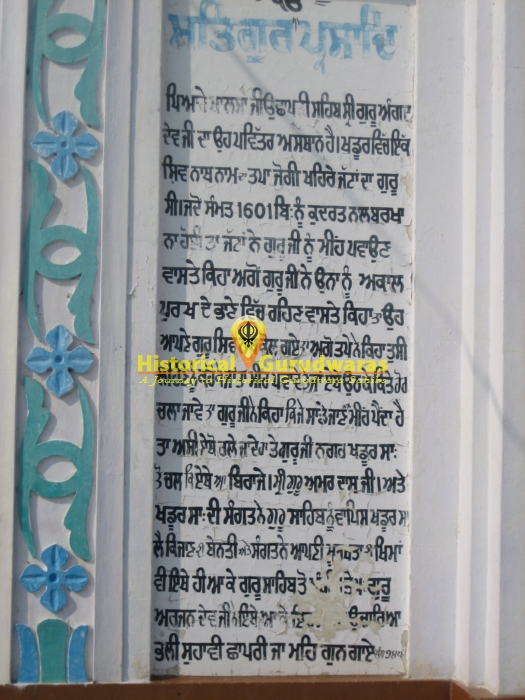 ੴ
ਸਤਿਗੁਰ ਪ੍ਰਸਾਦਿ
ਪਿਆਰੇ ਖਾਲਸਾ ਜੀਉ ਛਾਪਰੀ ਸਹਿਬ ਸ੍ਰੀ ਗੁਰੂ ਅੰਗਦ
ਦੇਵ ਜੀ ਦਾ ਉਹ ਪਵਿੱਤਰ ਅਸਥਾਨ ਹੈ। ਖਡੂਰ ਵਿੱਚ ਇੱਕ
ਸਿਵ ਨਾਥ ਨਾਮ ਦਾ ਤਪਾ ਜੋਗੀ ਖਹਿਰੇ ਜੱਟਾਂ ਦਾ ਗੁਰੂ
ਸੀ।ਜਦੋਂ ਸੰਮਤ 1601 ਬਿ: ਨੂੰ ਕੁਦਰਤ ਨਲ ਬਰਖਾ
ਨਾ ਹੋਈ ਤਾਂ ਜੱਟਾਂ ਨੇ ਗੁਰੂ ਜੀ ਨੂੰ ਮੀਂਹ ਪਵਾਉਣ
ਵਾਸਤੇ ਕਿਹਾ ਅਗੋਂ ਗੁਰੂ ਜੀ ਨੇ ਉਨਾ ਨੂੰ ਅਕਾਲ
ਪੁਰਖ ਦੇ ਭਾਣੇ ਵਿੱਚ ਰਹਿਣ ਵਾਸਤੇ ਕਿਹਾ ਤਾਂ ਉਹ
ਆਪਣੇ ਗੁਰੂ ਸਿਵ ਕੋਲ ਗਏ ਤਾਂ ਅਗੋਂ ਤਪੇ ਨੇ ਕਿਹਾ ਤੁਸੀਂ
Historical Gurudwaras
A Journey to Historical Gurudwara Sahibs
ਚਲਾ ਜਾਵੇ ਤਾਂ ਗੁਰੂ ਜੀ ਨੇ ਕਿਹਾ ਕਿ ਜੇ ਸਾਡੇ ਜਾਣ ਨਾਲ ਮੀਂਹ ਪੈਂਦਾ ਹੈ
ਤਾਂ ਅਸੀਂ ਏਥੋਂ ਚਲੇ ਜਾਂਦੇ ਹਾਂ ਤੇ ਗੁਰੂ ਜੀ ਨਗਰ ਖਡੂਰ ਸਾ:
ਤੋਂ ਚਲ ਕਿ ਏਥੇ ਆ ਬਿਰਾਜੇ। ਸ੍ਰੀ ਗੁਰੂ ਅਮਰ ਦਾਸ ਜੀ।ਅਤੇ
ਖਡੂਰ ਸਾ: ਦੀ ਸੰਗਤ ਨੇ ਗੁਰੂ ਸਾਹਿਬ ਨੂੰ ਵਾਪਿਸ ਖਡੂਰ ਸਾ
ਲੈ ਕਿ ਜਾਣ ਦੀ ਬੇਨਤੀ ਅਤੇ ਸੰਗਤ ਨੇ ਆਪਣੀ ਖਿਮਾਂ
ਵੀ ਇਥੇ ਹੀ ਆ ਕੇ ਗੁਰੂ ਸਾਹਿਬ ਤੋਂ ਗੁਰੂ
ਅਰਜਨ ਦੇਵ ਜੀ ਨੇ ਇਥੇ ਆ ਕੇ ਉਚਾਰਿਆ
ਭਲੀ ਸੁਹਾਵੀ ਛਾਪਰੀ ਜਾ ਮਹਿ ਗੁਨ ਗਾਏ